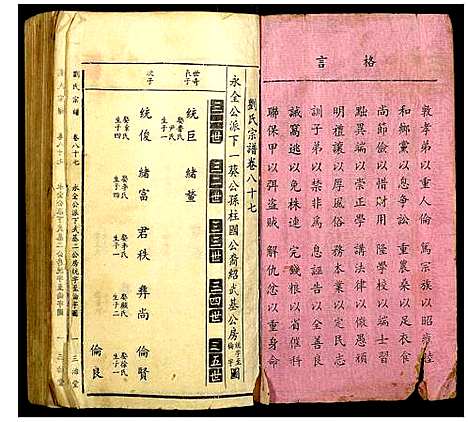 格言
敦孝弟以重人倫　篤宗族以昭雍睦
和鄉黨以息爭訟　重農桑以足衣食
尚節儉以惜財用　隆學校以端士習
黜異端以崇正學　講法律以儆愚頑
明禮讓以厚風俗　務本業以定民志
訓子弟以禁非為　息誣告以全善良
誡窩逃以免株連　完錢糧以省催科
聯保甲以弭盜賊　解仇忿以重身命
劉氏宗譜卷八十七
永全公派下一蔡公孫柱國公裔紹武基公房統字至倫字圖
三一世　三二世　三三世　三四世　三五世
統巨　緒鰲
娶尹氏
統俊　緒富　君秩　彝尚　倫賢
生子四　娶李氏　生子一　娶李氏　生子二　娶顏氏　生子一　娶徐氏
倫良
劉氏宗譜　卷八十七　永全公派下武基二公房統字至倫字圖　一　三治堂